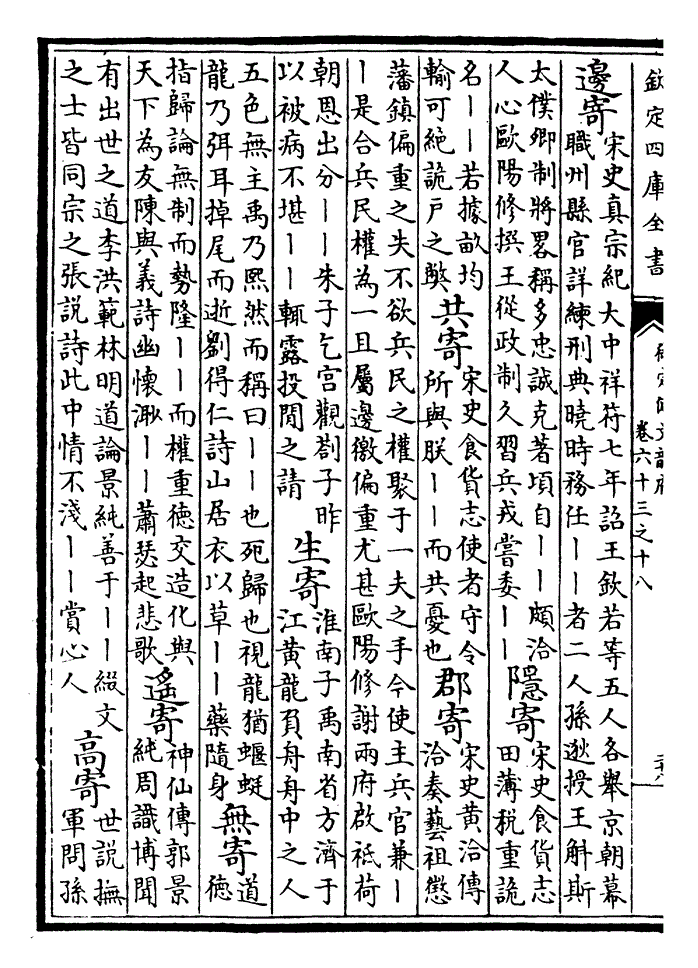 欽定四庫全書
卷六十三之十八
邊寄
宋史真宗紀大中祥符七年詔王欽若等五人各舉京朝幕
職州縣官詳練刑典曉時務任丨丨者二人孫逖授王斛斯
太僕卿制將畧稱多忠誠克著頃自丨丨頗洽
人心歐陽修撰王從政制久習兵戎嘗委丨丨
隱寄
宋史食貨志
田薄稅重詭
名丨丨若據畝均
輸可絶詭戶之弊
共寄
宋史食貨志使者守令
所與朕丨丨而共憂也
郡寄
宋史黃洽傳
洽奏藝祖懲
藩鎮偏重之失不欲兵民之權聚于一夫之手今使主兵官兼丨
丨是合兵民權為一且屬邊徼偏重尤甚歐陽修謝兩府啟祗荷
朝恩出分丨丨朱子乞宮觀劄子昨
以被病不堪丨丨輒露投閒之請
生寄
淮南子禹南省方濟于
江黃龍負舟舟中之人
五色無主禹乃熙然而稱曰丨丨也死歸也視龍猶蝘蜓
龍乃弭耳掉尾而逝劉得仁詩山居衣以草丨丨藥隨身
無寄
道
德
指歸論無制而勢隆丨丨而權重德交造化與
天下為友陳與義詩幽懷渺丨丨蕭瑟起悲歌
遙寄
神仙傳郭景
純周識博聞
有出世之道李洪範林明道論景純善于丨丨綴文
之士皆同宗之張說詩此中情不淺丨丨賞心人
高寄
世說撫
軍問孫